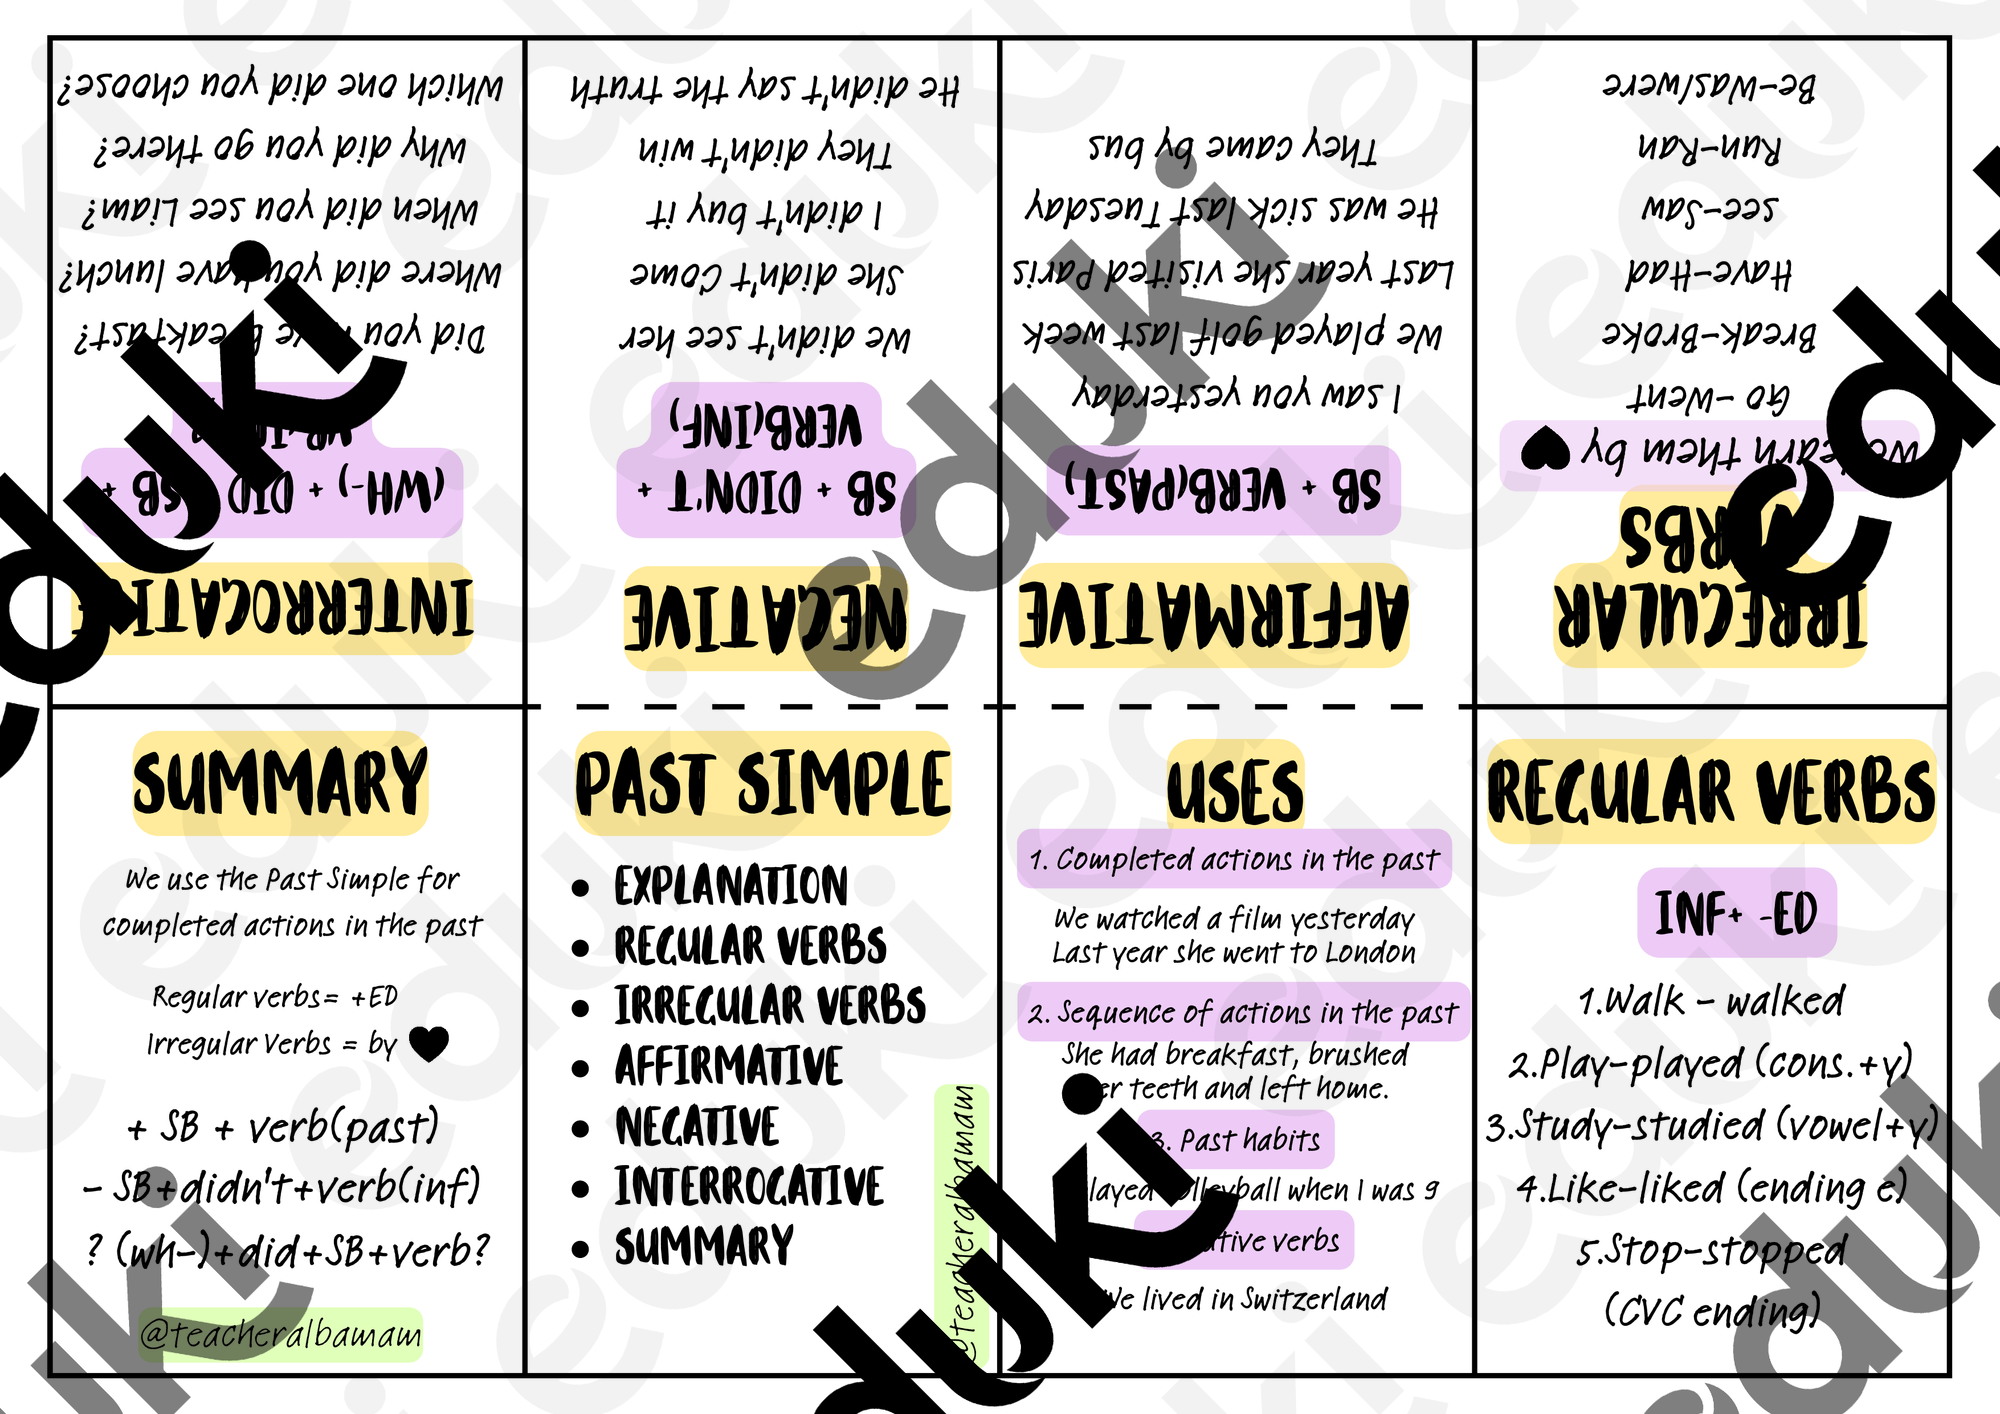 SUMMARY
We use the Past Simple for
completed actions in the past
Regular verbs= +ED
Irregular Verbs = by
+ SB + verb(past)
- SB+didn't+verb(inf)
? (wh-)+did+SB+verb?
@teacheralbamam
PAST SIMPLE
• EXPLANATION
• REGULAR VERBS
• IRREGULAR VERBS
• AFFIRMATIVE
• NEGATIVE
• INTERROGATIVE
• SUMMARY
@teacheralbamam
USES
1. Completed actions in the past
We watched a film yesterday
Last year she went to London
2. Sequence of actions in the past
She had breakfast, brushed
teeth and left home.
3. Past habits
when I was 9
verbs
We lived in Switzerland
REGULAR VERBS
INF+ -ED
1.Walk - walked
2.Play-played (cons.+y)
3.Study-studied (vowel+y)
4.Like-liked (ending e)
5.Stop-stopped
(CVC ending)
IRREGULAR
VERBS
learn them by
Go -Went
Break-Broke
Have-Had
See-Saw
Run-Ran
Be-Was/were
AFFIRMATIVE
SB + VERB(PAST)
I saw you yesterday
We played golf last week
Last year she visited Paris
He was sick last Tuesday
They came by bus
NEGATIVE
SB + DIDN'T +
VERB(INF)
We didn't see her
She didn't Come
I didn't buy it
They didn't win
He didn't say the truth
INTERROGATIVE
(WH-) + DID + SB +
Did you breakfast?
Where did you have lunch?
When did you see Liam?
Why did you go there?
Which one did you choose?
eduki
eduki
eduki
eduki